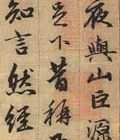 夜與山巨源
足下昔稱吾
知言然經